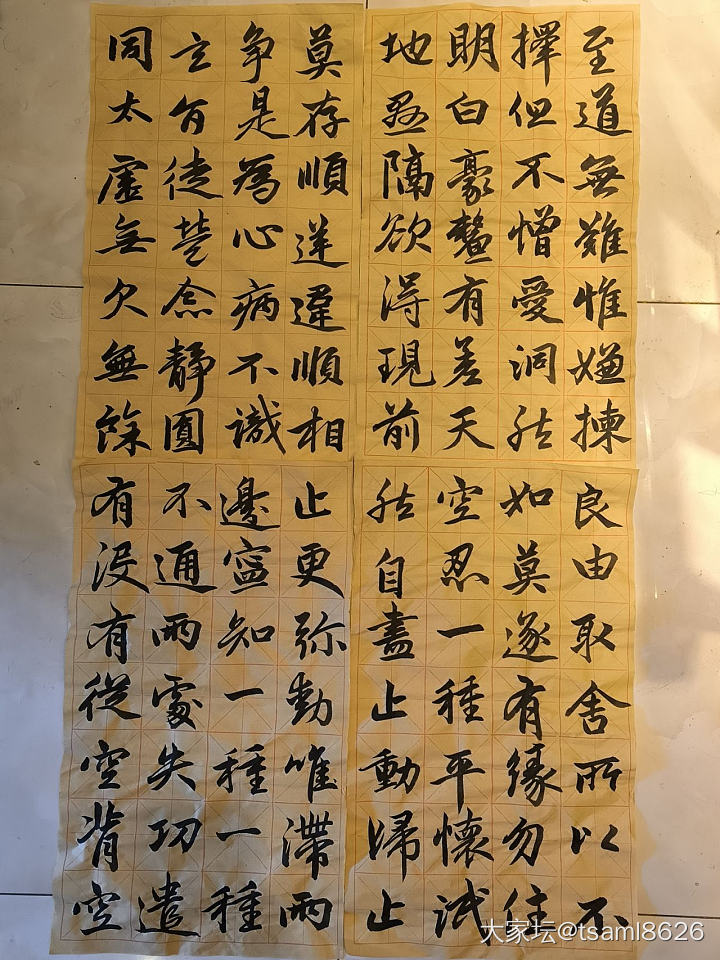 至道無難惟嫌揀
擇但不憎愛洞然
明白豪釐有差天
地懸隔欲得現前
莫存順逆違順相
争是為心病不識
玄旨徒勞念靜圓
同太虛無欠無餘
良由取舍所以不
如莫逐有緣勿住
空忍一種平懷泯
然自盡止動歸止
止更弥動唯滯兩
邊寧知一種一種
不通兩處失功遣
有没有從空背空
大家坛@tsaml8626